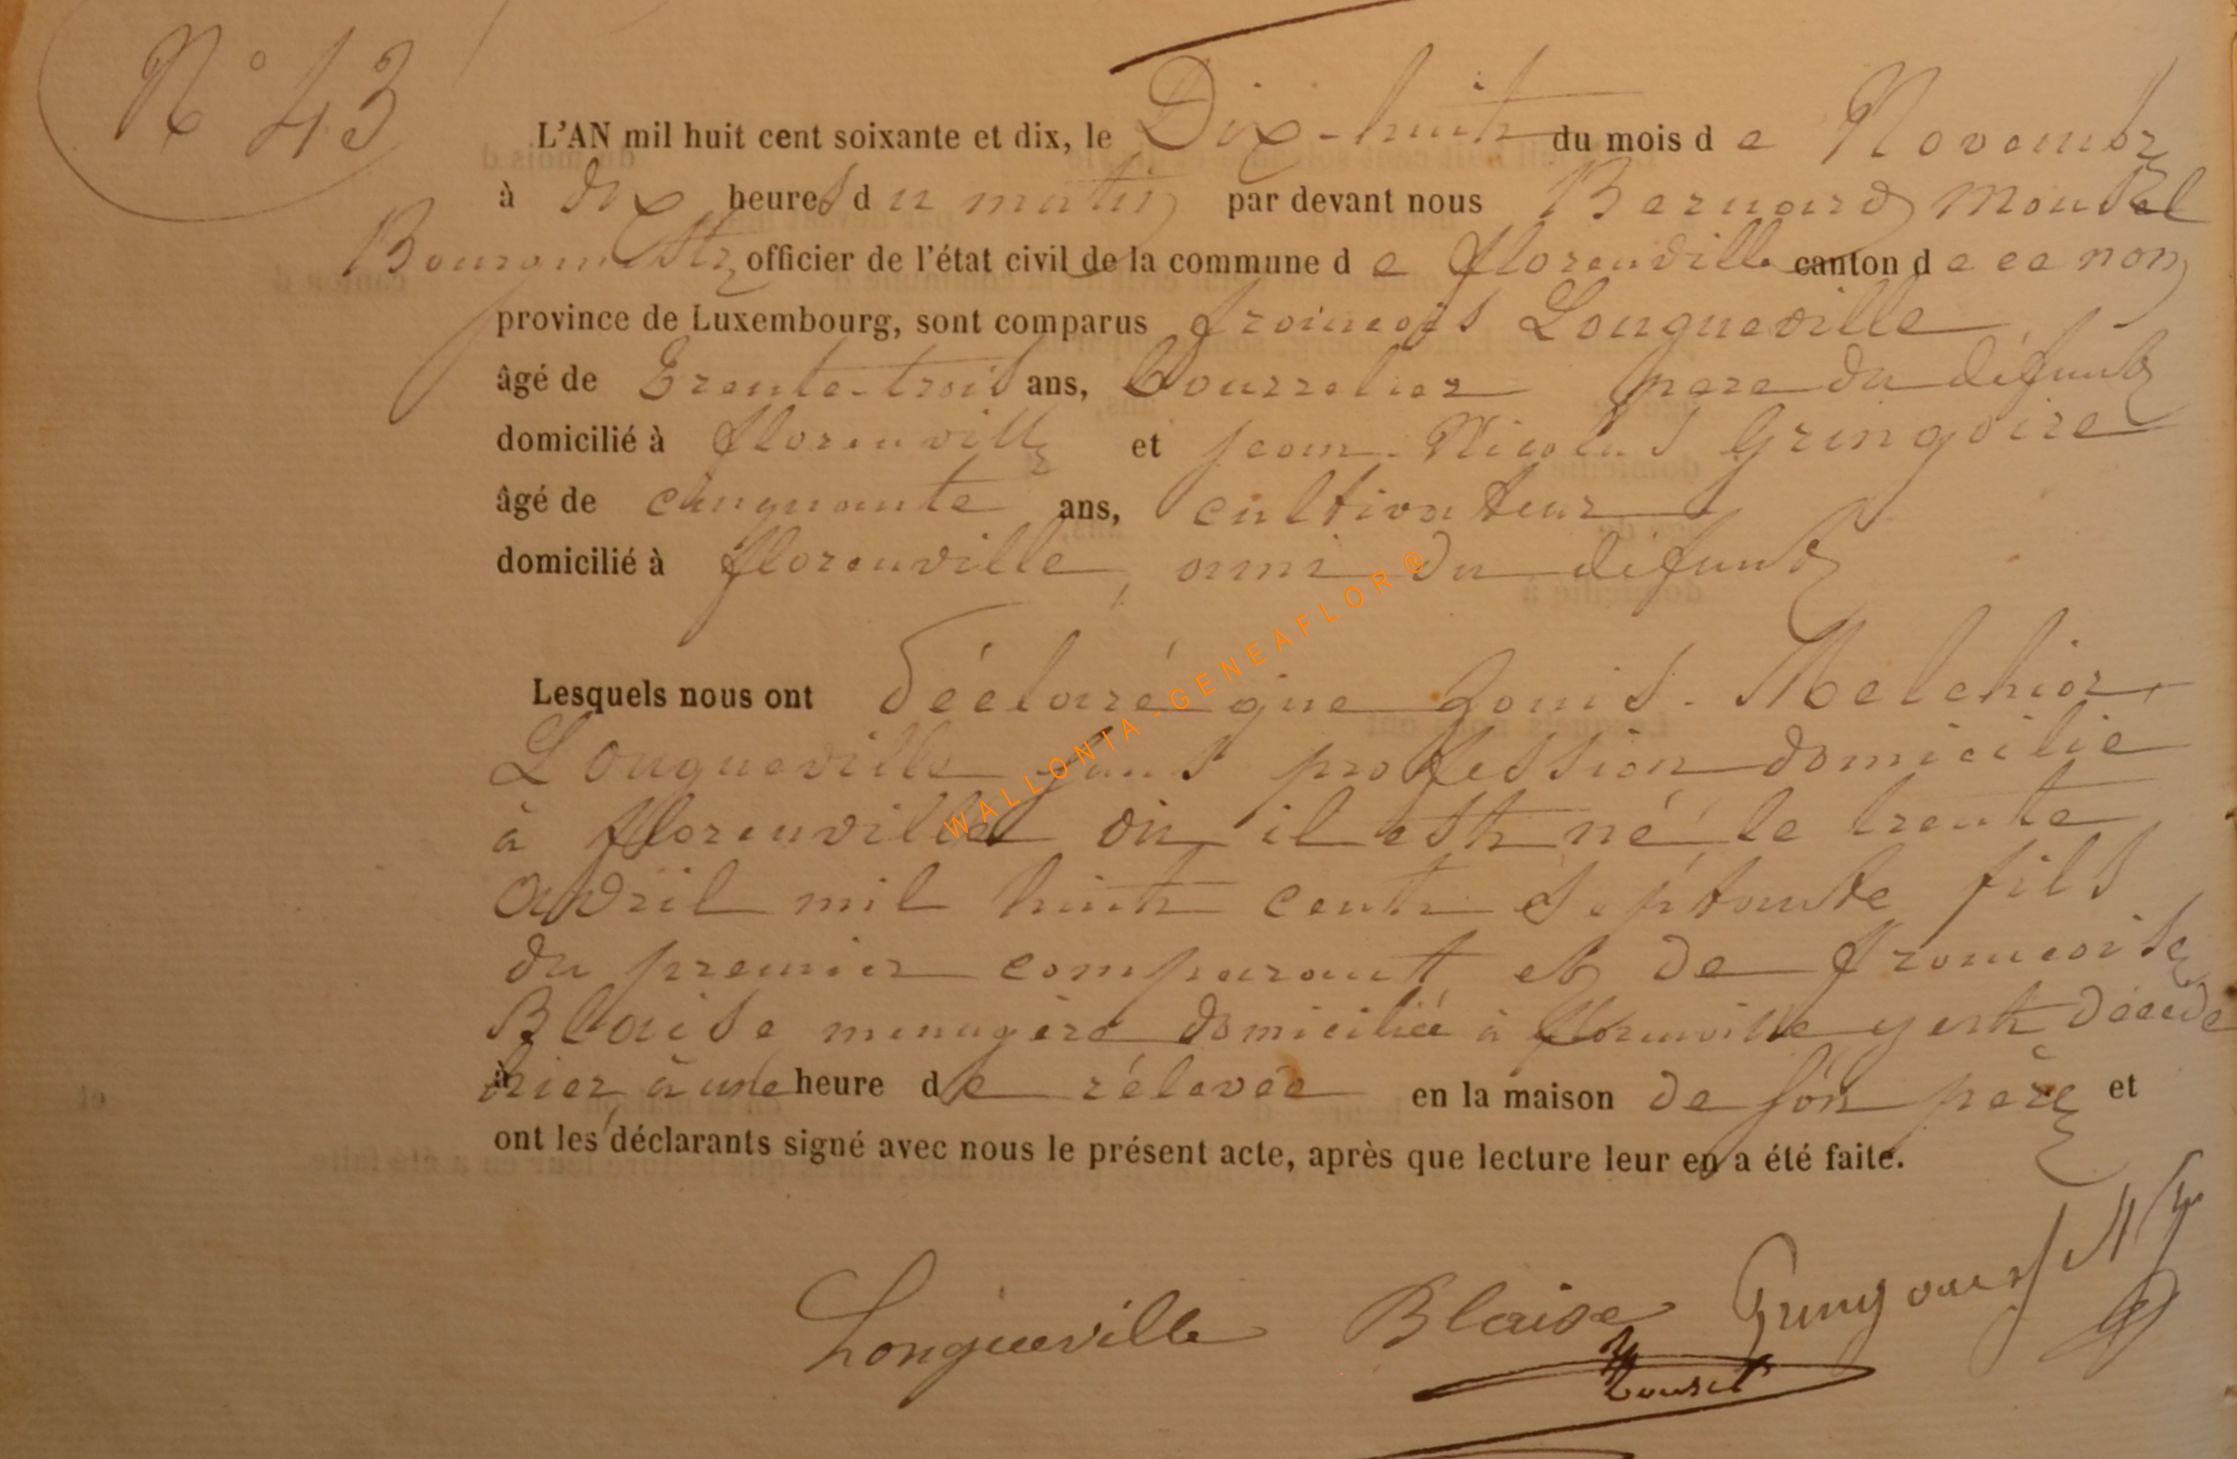 N° 43
L'AN mil huit cent soixante et dix, le Dix-huit du mois de Novembre
à dix heures du matin par devant nous Bernard Mousel
Bourgmestre officier de l'état civil de la commune de florenville canton de ce nom
province de Luxembourg, sont comparus francois Longueville
âgé de Trente-trois ans, Bourrelier pere du défunt
domicilié à florenville et jean-Nicolas Gringoire
âgé de cinquante ans, cultivateur
domicilié à florenville, ami du défunt
Lesquels nous ont déclaré que Louis-Melchior
Longueville sans profession domicilie
à florenville où il est né le trente
avril mil huit cent septante fils
du premier comparant et de francoise
Blaise menagère domiciliée à florenville y est décédé
hier à une heure de rélevée en la maison de son père et
ont les déclarants signé avec nous le présent acte, après que lecture leur en a été faite.
Longueville Blaise Gringoire J N
Mousel
WALLONIA-GENEAFLOR®